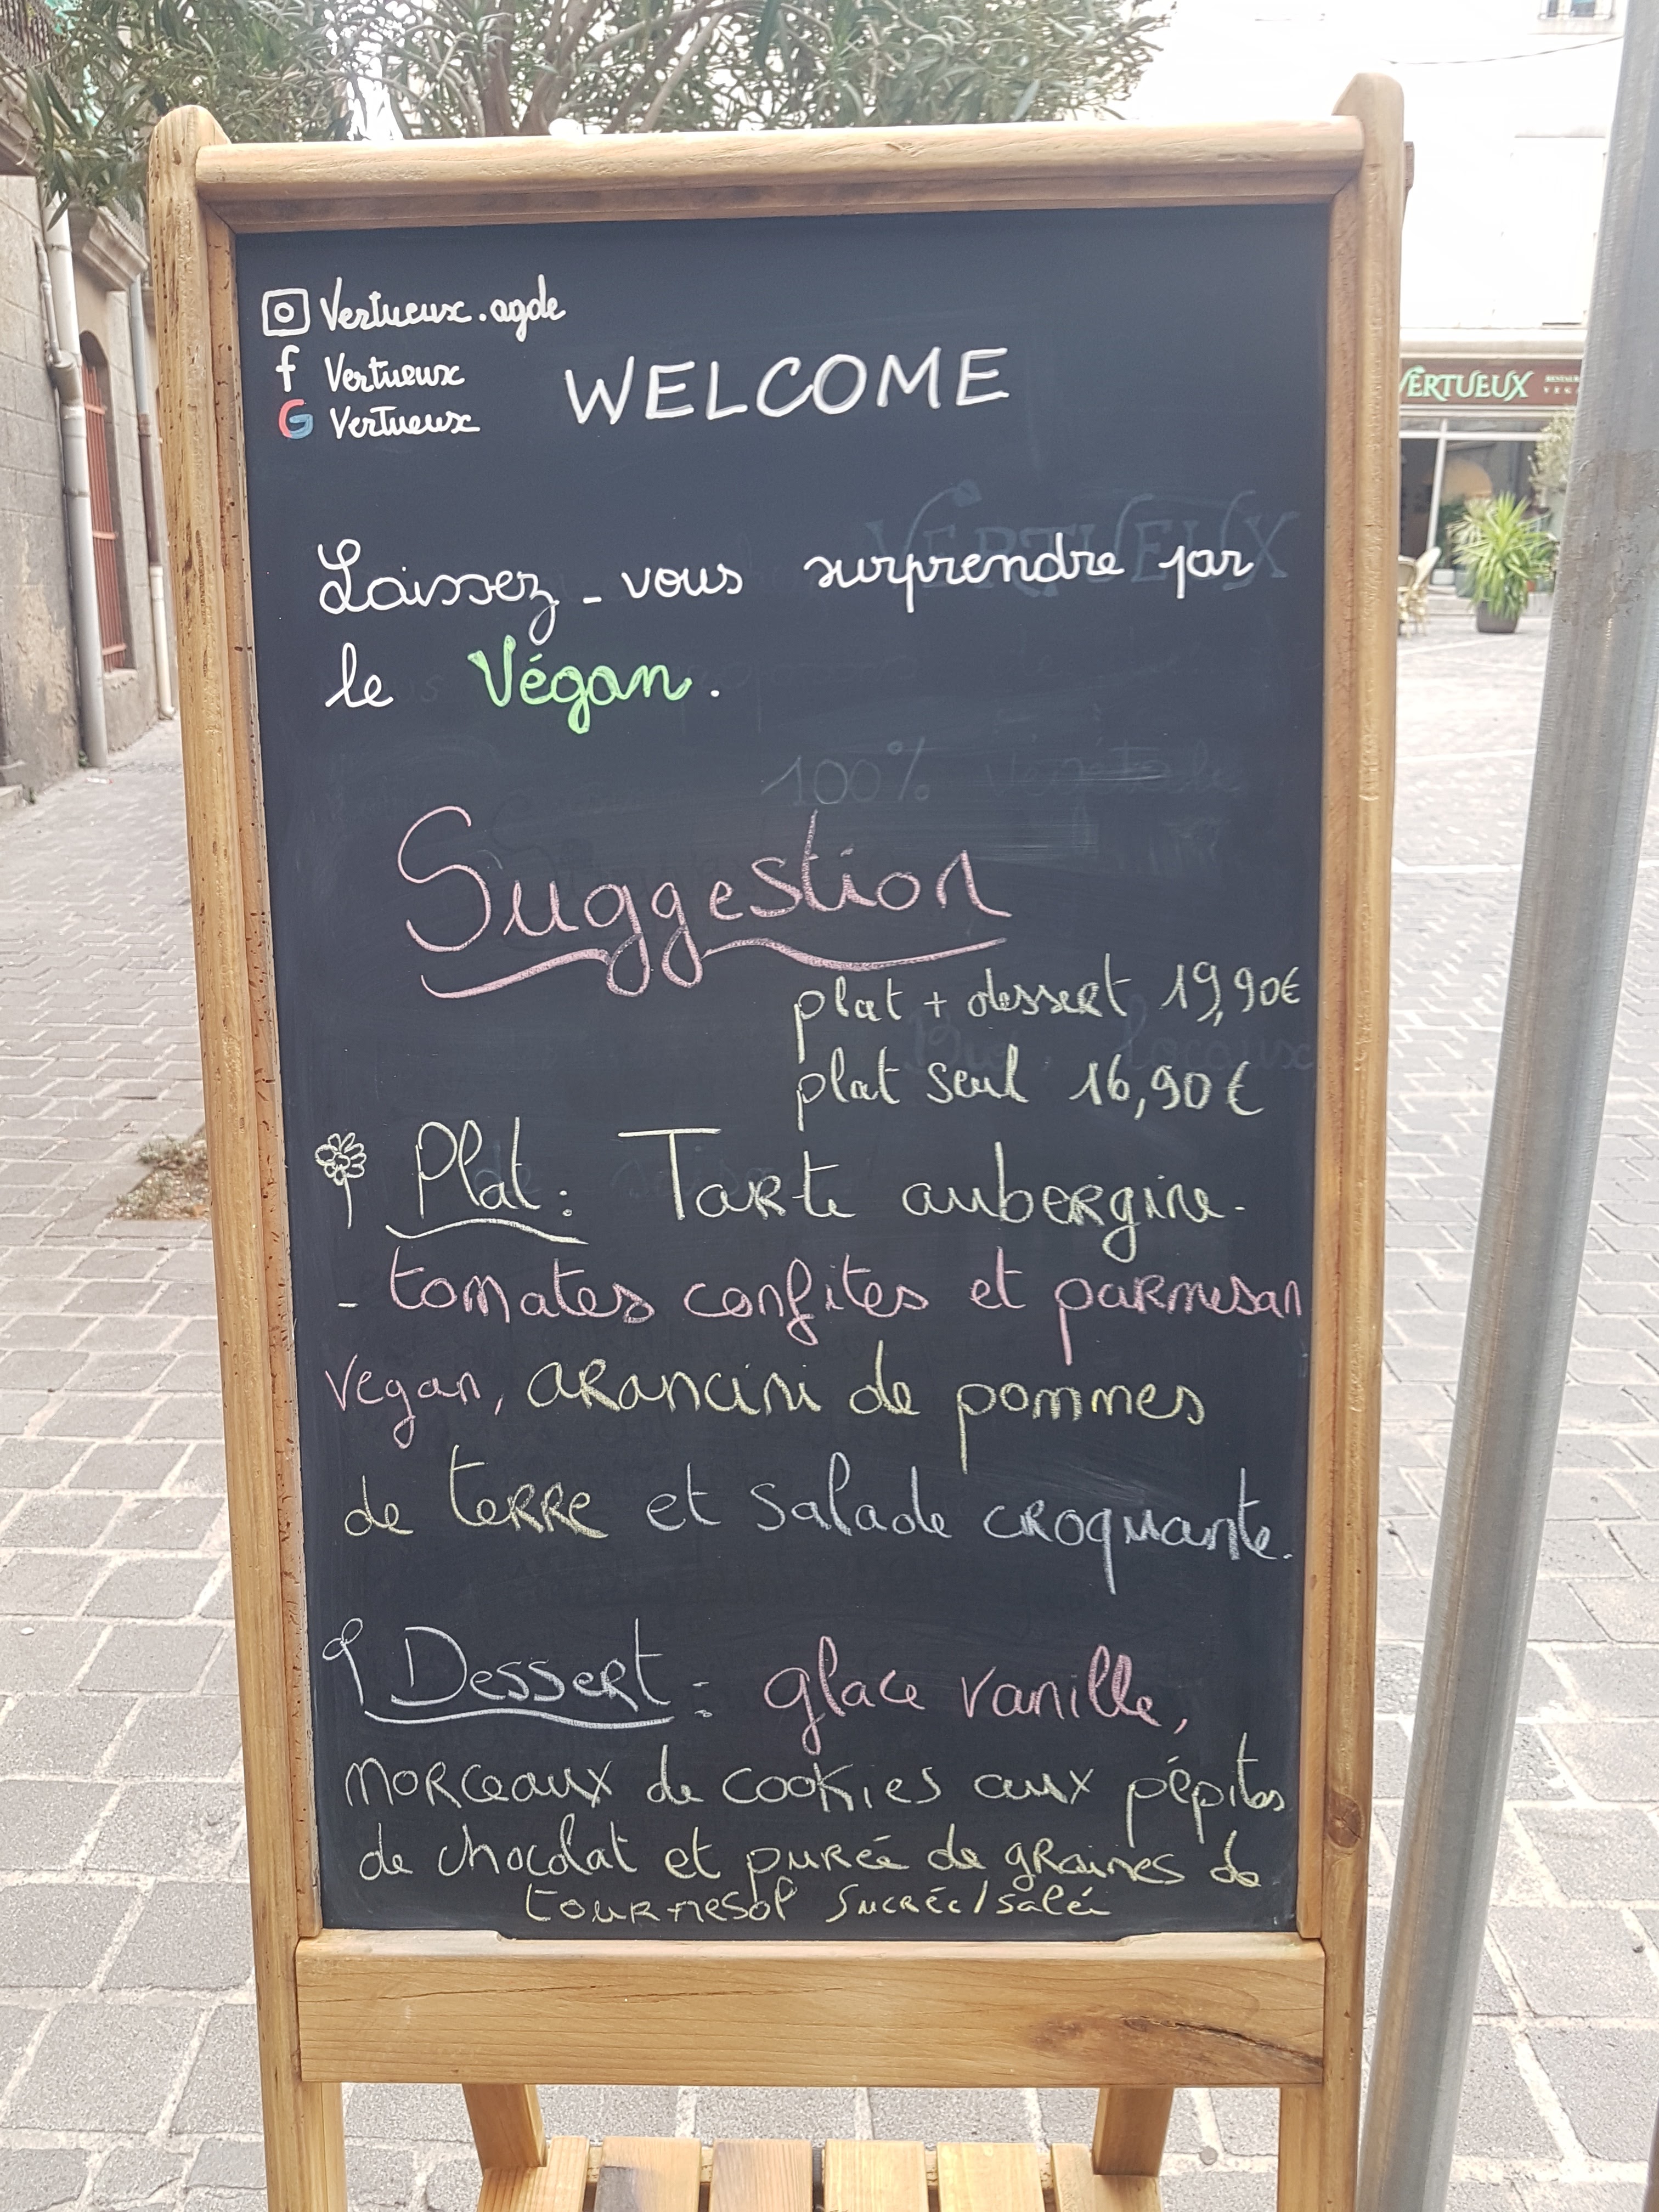 Vertueux.agde
f Vertueux
G Vertueux
WELCOME
VERTUEUX
VERTUEUX
Laissez-vous surprendre par
le Végan.
100% végétale
Suggestion
plat + dessert 19,90€
Bio, locaux
plat seul 16,90€
Plat: Tarte aubergine-
- tomates confites et parmesan
vegan, arancini de pommes
de terre et salade croquante.
Dessert: glace vanille,
morceaux de cookies aux pépites
de chocolat et purée de graines de
tournesol sucrée/salée